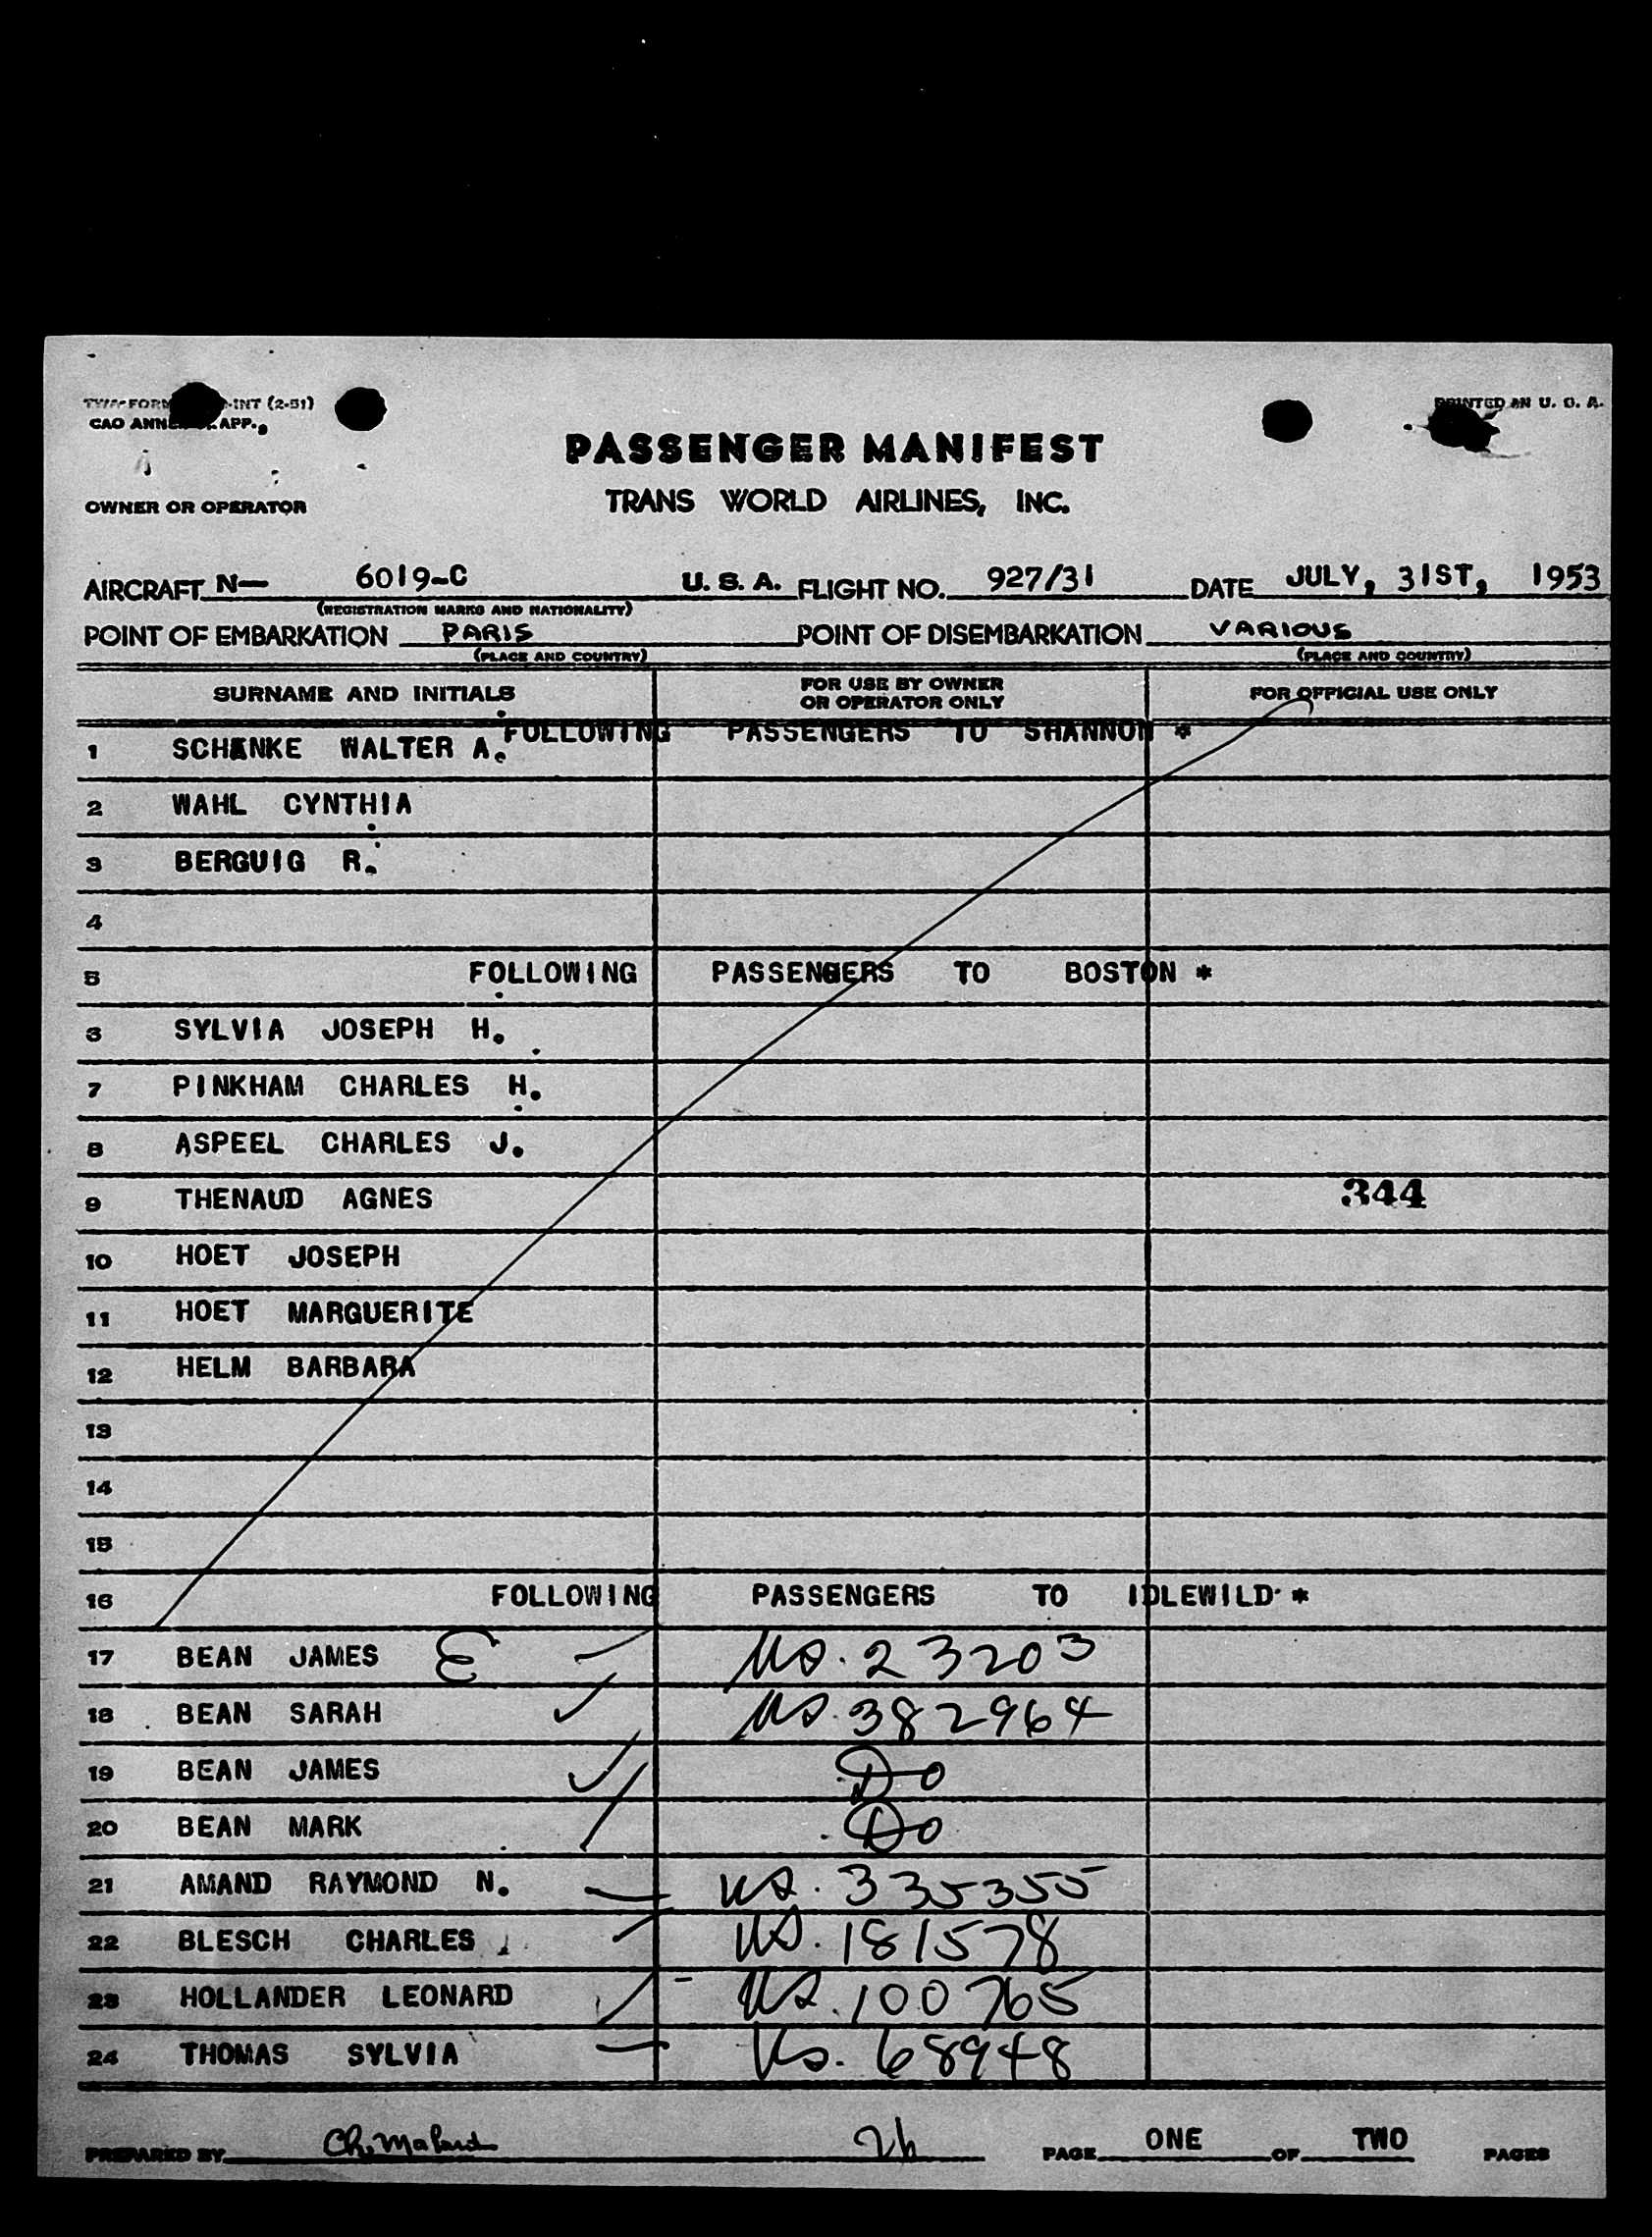 -INT (2-51)
PRINTED IN U. S. A.
CAO ANNEX APP.
PASSENGER MANIFEST
OWNER OR OPERATOR
TRANS WORLD AIRLINES, INC.
AIRCRAFT N— 6019-C U. S. A. FLIGHT NO. 927/31 DATE JULY, 31ST, 1953
(REGISTRATION MARKS AND NATIONALITY)
POINT OF EMBARKATION PARIS POINT OF DISEMBARKATION VARIOUS
(PLACE AND COUNTRY) (PLACE AND COUNTRY)
SURNAME AND INITIALS FOR USE BY OWNER OR OPERATOR ONLY FOR OFFICIAL USE ONLY
FOLLOWING PASSENGERS TO SHANNON *
1 SCHENKE WALTER A.
2 WAHL CYNTHIA
3 BERGUIG R.
4
5 FOLLOWING PASSENGERS TO BOSTON *
6 SYLVIA JOSEPH H.
7 PINKHAM CHARLES H.
8 ASPEEL CHARLES J.
9 THENAUD AGNES 344
10 HOET JOSEPH
11 HOET MARGUERITE
12 HELM BARBARA
13
14
15
16 FOLLOWING PASSENGERS TO IDLEWILD *
17 BEAN JAMES E US. 23203
18 BEAN SARAH US. 382964
19 BEAN JAMES Do
20 BEAN MARK Do
21 AMAND RAYMOND N. US. 335355
22 BLESCH CHARLES US. 181578
23 HOLLANDER LEONARD US. 100765
24 THOMAS SYLVIA US. 68948
PREPARED BY PAGE ONE OF TWO PAGES